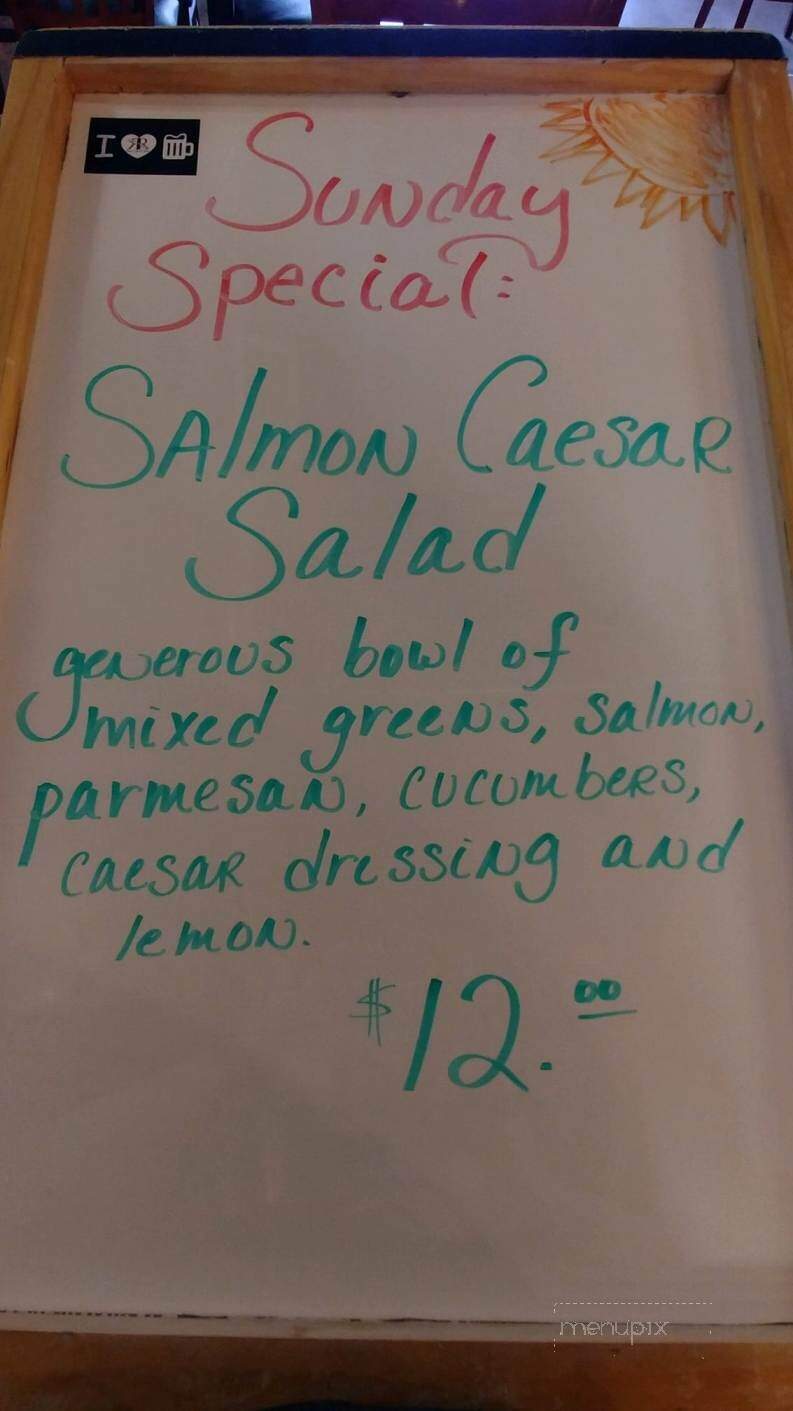 I
Sunday
Special:
Salmon Caesar
Salad
generous bowl of
mixed greens, salmon,
parmesan, cucumbers,
caesar dressing and
lemon.
$12.00
menupix